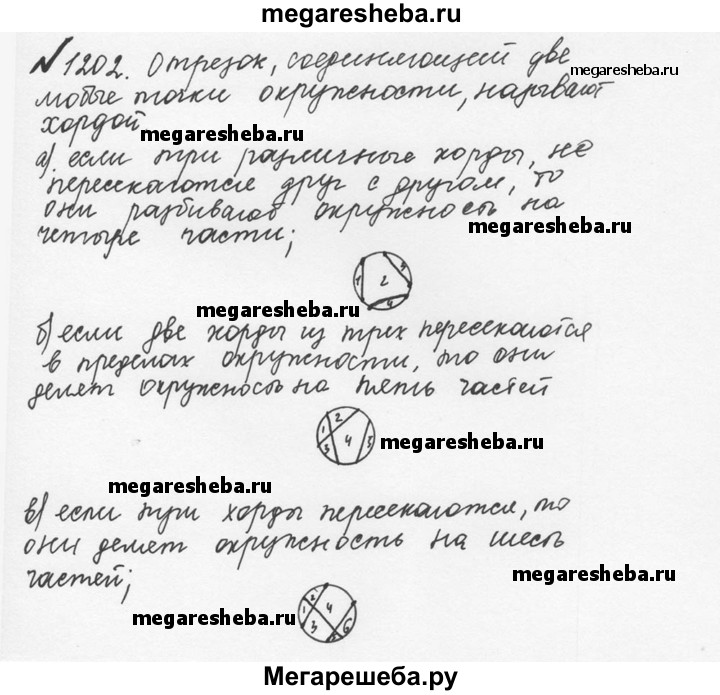 megaresheba.ru
№1202. Отрезок, соединяющий две
megaresheba.ru
любые точки окружности, называют
хордой
megaresheba.ru
а) если три различные хорды, не
пересекаются друг с другом, то
они разбивают окружность на
megaresheba.ru
четыре части;
1 2 3 4
megaresheba.ru
б) если две хорды из трех пересекаются
в пределах окружности, то они
делят окружность на пять частей
1 2 3 4 5
megaresheba.ru
megaresheba.ru
в) если три хорды пересекаются, то
они делят окружность на шесть
частей;
megaresheba.ru
1 2 3 4 6
megaresheba.ru
Мегарешеба.ру